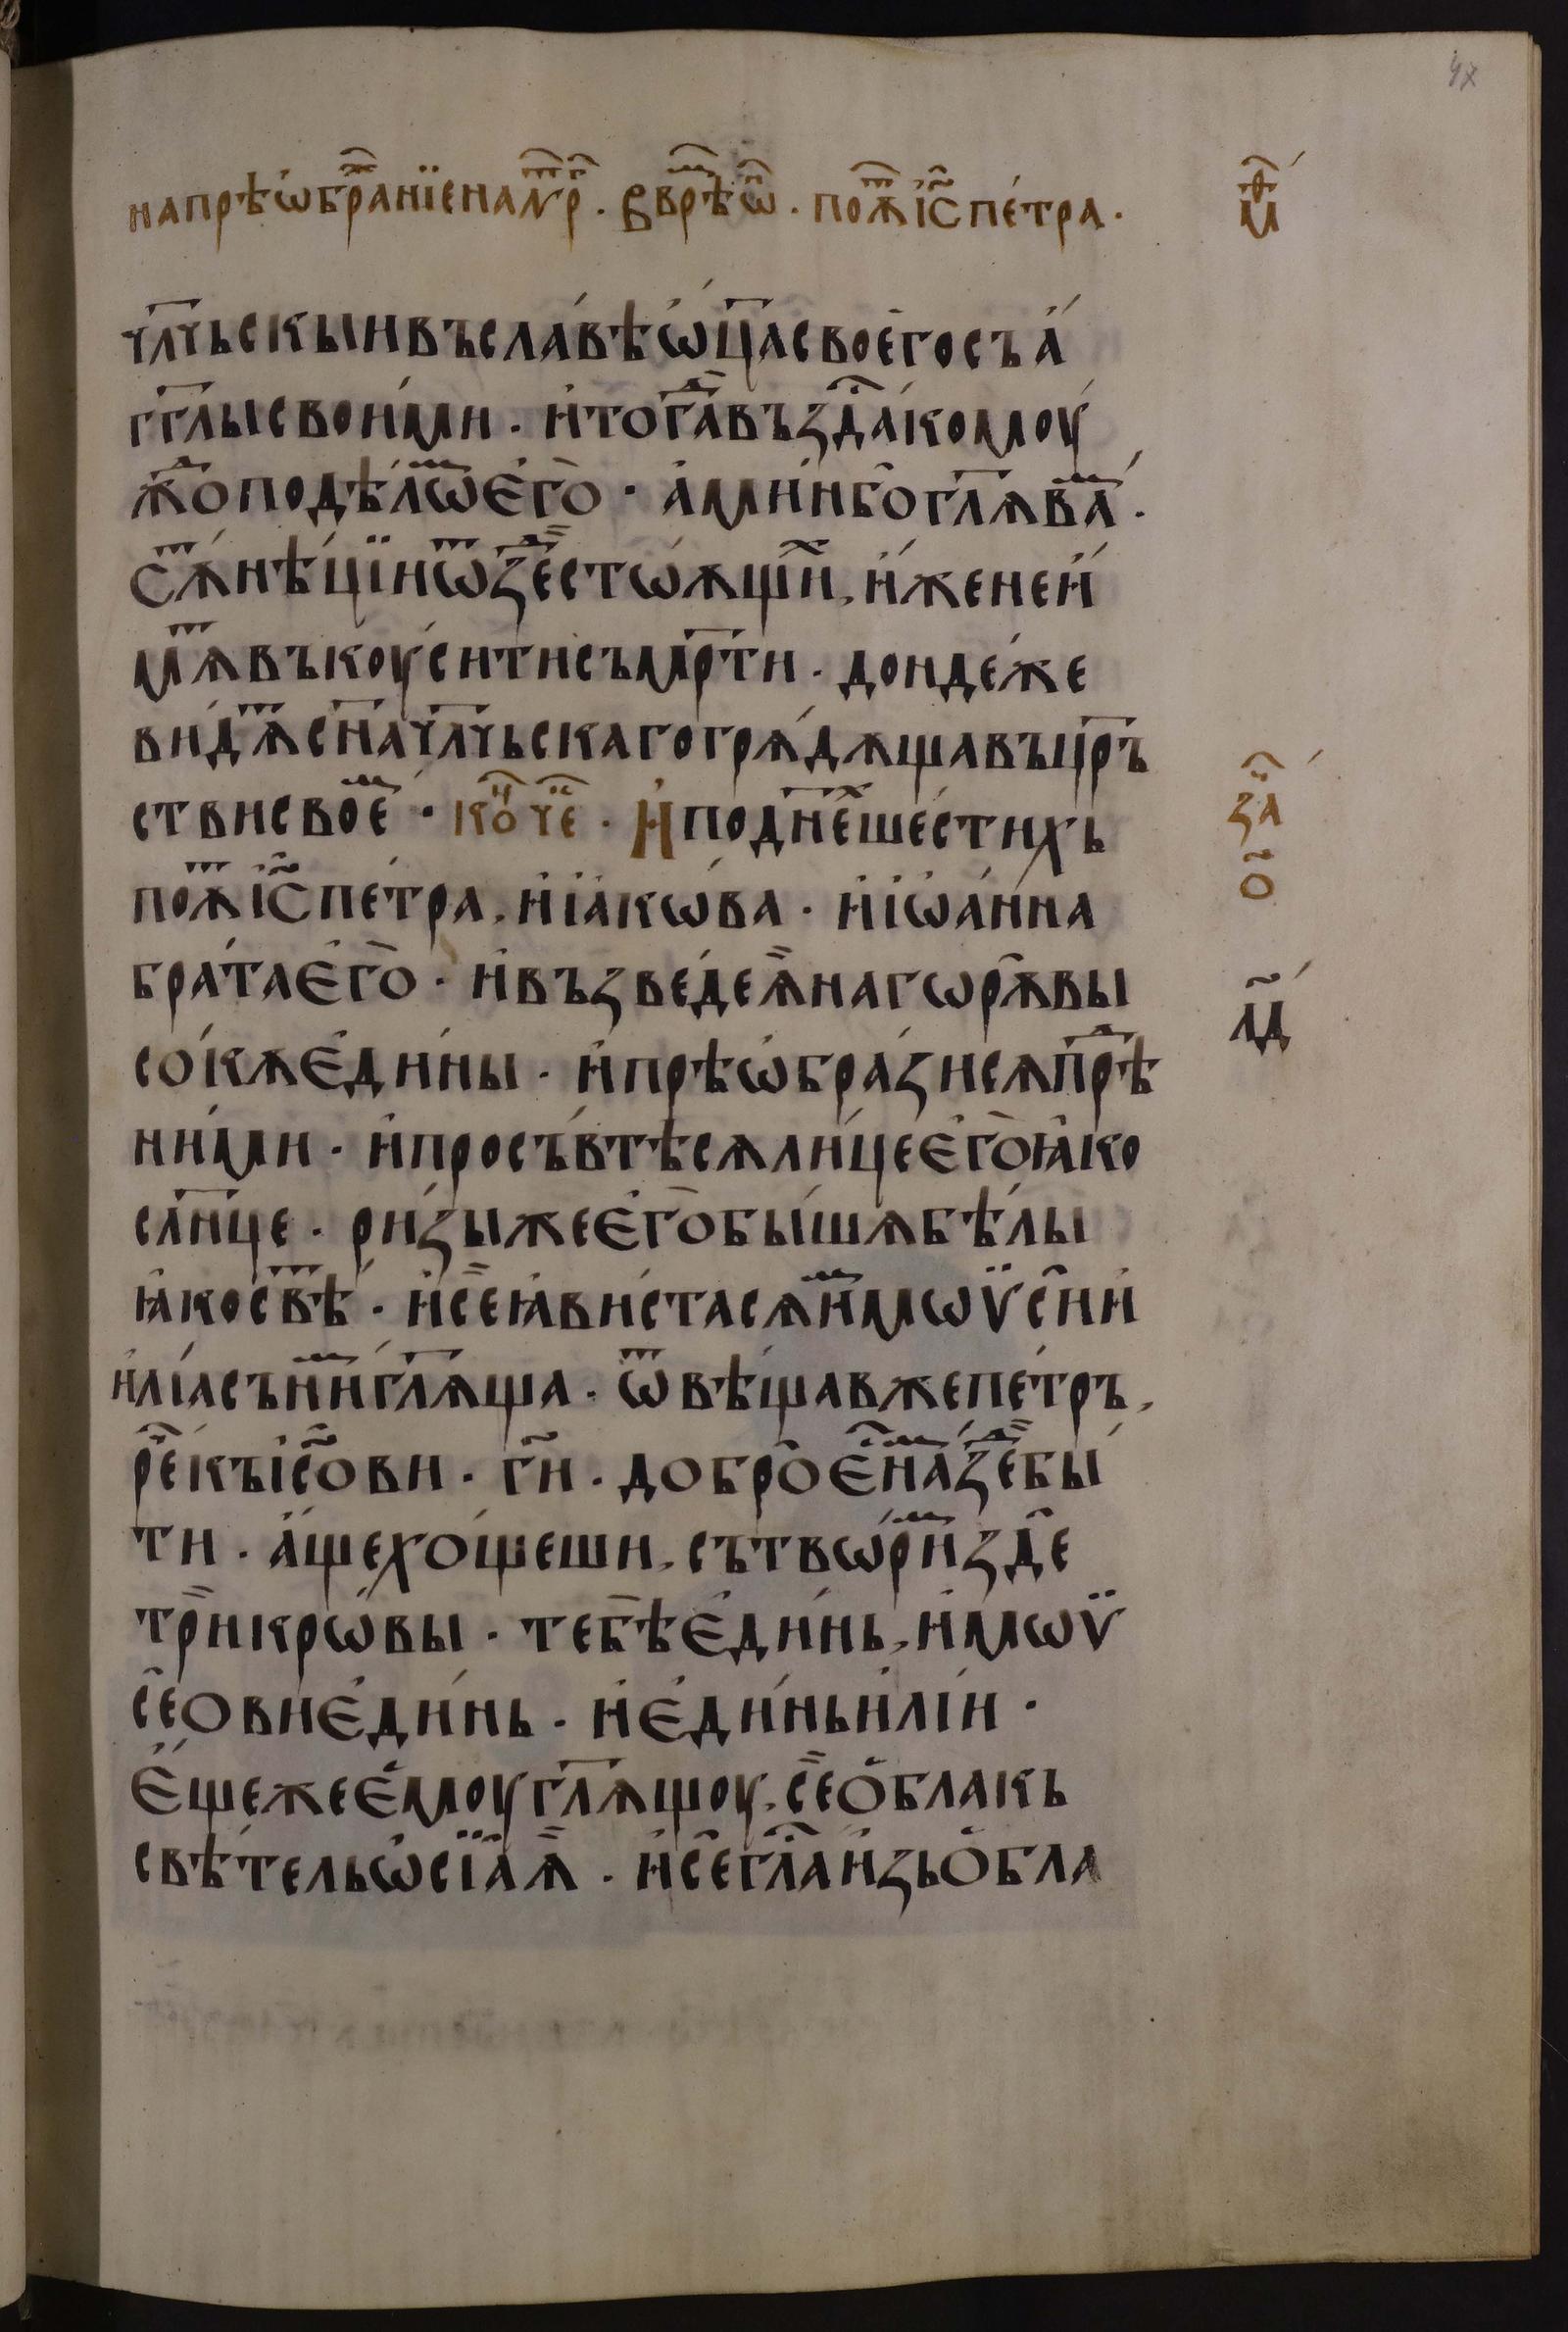 напрѣѡбра́нїена ѹ҆р҃ · Ввр҃ѣѡ҃ · поѧ҃ і҆с҃ пе́тра ·
члч҃ьскыи въсла́вѣ ѡ҆ц҃а своего̀ съ а҆́
гг҃лы свои́ми · и҆ тогⷣа въздⷭ҇а́ комоу́
жⷣо подѣ́лѡⷨ е҆го̀ · а҆ми́нь бо̑ гл҃ѧ ваⷨ҇ ·
сѫⷮ нѣ́цїи ѿ здеⷭ҇ стѡѧ́щиⷯ, и҆́же неи́
мѫⷮ въкоу́сити съмр҃ти · донде́же
ви́дѧⷮ сн҃а члч҃ьскаго грѧ́дѧща въ цр҃ъ
стви свое́ⷨ · коⷰ҇ че҃ · И҆ по дн҃еⷯ шести́хь
поѧⷮ і҆с҃ пе́тра, и҆ і҆а́кѡва · и҆ і҆ѡа́нна
бра́та е҆го̀ · и҆ възве́де ѧ҆̀ на гѡрѫ̑ вы
со́кѫ е҆ди́ны · и҆ прѣѡбра́зисѧ прⷣѣ
ни́ми · и҆ просъ́втѣсѧ лице́ е҆го̀ ꙗ҆́ко
сл҃нце · ри́зы же е҆го̀ бы́шѧ бѣ́лы
ꙗ҆́ко свѣⷮ · и҆ сѐ ꙗ҆ви́стасѧ и҆ⷨ мѡѷсі́и и҆
и҆лі́а съ ни́ⷨ гл҃ѧща · ѿвѣ́щавже пе́тръ,
реⷱ҇ къ і҆с҃ови · гн҃и · добро̑ еⷭ҇ наⷨ зде́ бы́
ти · а҆́ще хо́щеши, сътвѡри́ⷨ здⷭ҇е
трѝ кро́вы · тебѣ̀ е҆ди́нь, и҆ мѡѷ
се́ови е҆ди́нь · и҆ е҆ди́нь и҆лі́и ·
Е҆́ще же е҆моу̀ гл҃ѧщоу, се̏ о҆́блакь
свѣ́тель ѡ҆сїа́ ѧ҆̀ · и҆ се̑ глⷭ҇а и҆зь о҆́бла
м҃ф
заⷱ҇
о҃
мд҃
47